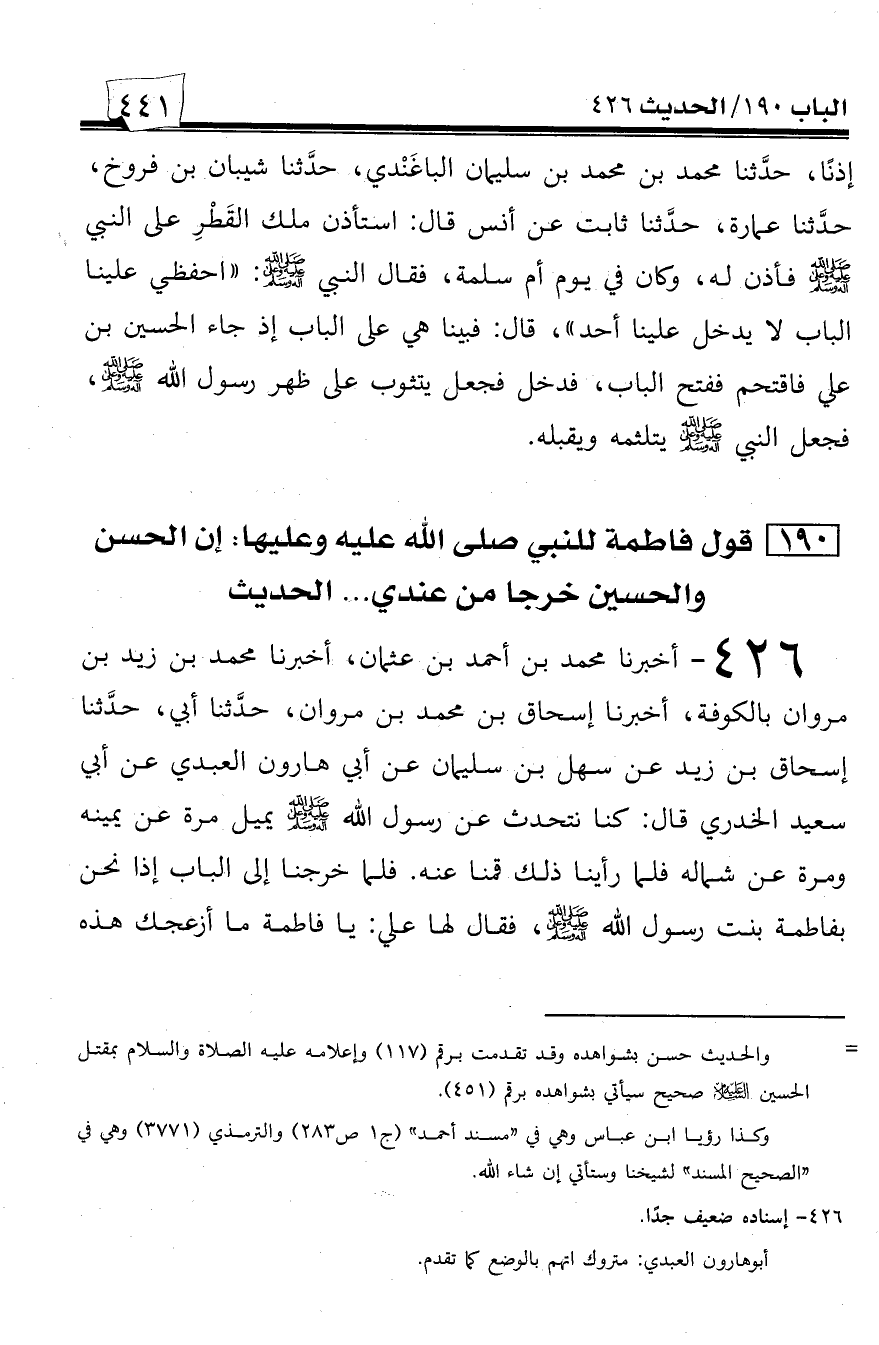 الباب ١٩٠/ الحديث ٤٢٦
٤٤١
إذنًا، حدَّثنا محمد بن محمد بن سليمان الباغَنْدي، حدَّثنا شيبان بن فروخ،
حدَّثنا عمارة، حدَّثنا ثابت عن أنس قال: استأذن ملك القَطْرِ على النبي
ﷺ فأذن له، وكان في يوم أم سلمة، فقال النبي ﷺ: «احفظي علينا
الباب لا يدخل علينا أحد»، قال: فبينا هي على الباب إذ جاء الحسين بن
علي فاقتحم ففتح الباب، فدخل فجعل يتثوب على ظهر رسول الله ﷺ،
فجعل النبي ﷺ يتلثمه ويقبله.
١٩٠ قول فاطمة للنبي صلى الله عليه وعليها: إن الحسن
والحسين خرجا من عندي... الحديث
٤٢٦- أخبرنا محمد بن أحمد بن عثمان، أخبرنا محمد بن زيد بن
مروان بالكوفة، أخبرنا إسحاق بن محمد بن مروان، حدَّثنا أبي، حدَّثنا
إسحاق بن زيد عن سهل بن سليمان عن أبي هارون العبدي عن أبي
سعيد الخدري قال: كنا نتحدث عن رسول الله ﷺ يميل مرة عن يمينه
ومرة عن شماله فلما رأينا ذلك قمنا عنه. فلما خرجنا إلى الباب إذا نحن
بفاطمة بنت رسول الله ﷺ، فقال لها علي: يا فاطمة ما أزعجك هذه
= والحديث حسن بشواهده وقد تقدمت برقم (١١٧) وإعلامه عليه الصلاة والسلام بمقتل
الحسين عليه السلام صحيح سيأتي بشواهده برقم (٤٥١).
وكذا رؤيا ابن عباس وهي في «مسند أحمد» (ج١ ص٢٨٣) والترمذي (٣٧٧١) وهي في
«الصحيح المسند» لشيخنا وستأتي إن شاء الله.
٤٢٦- إسناده ضعيف جدًا.
أبوهارون العبدي: متروك اتهم بالوضع كما تقدم.